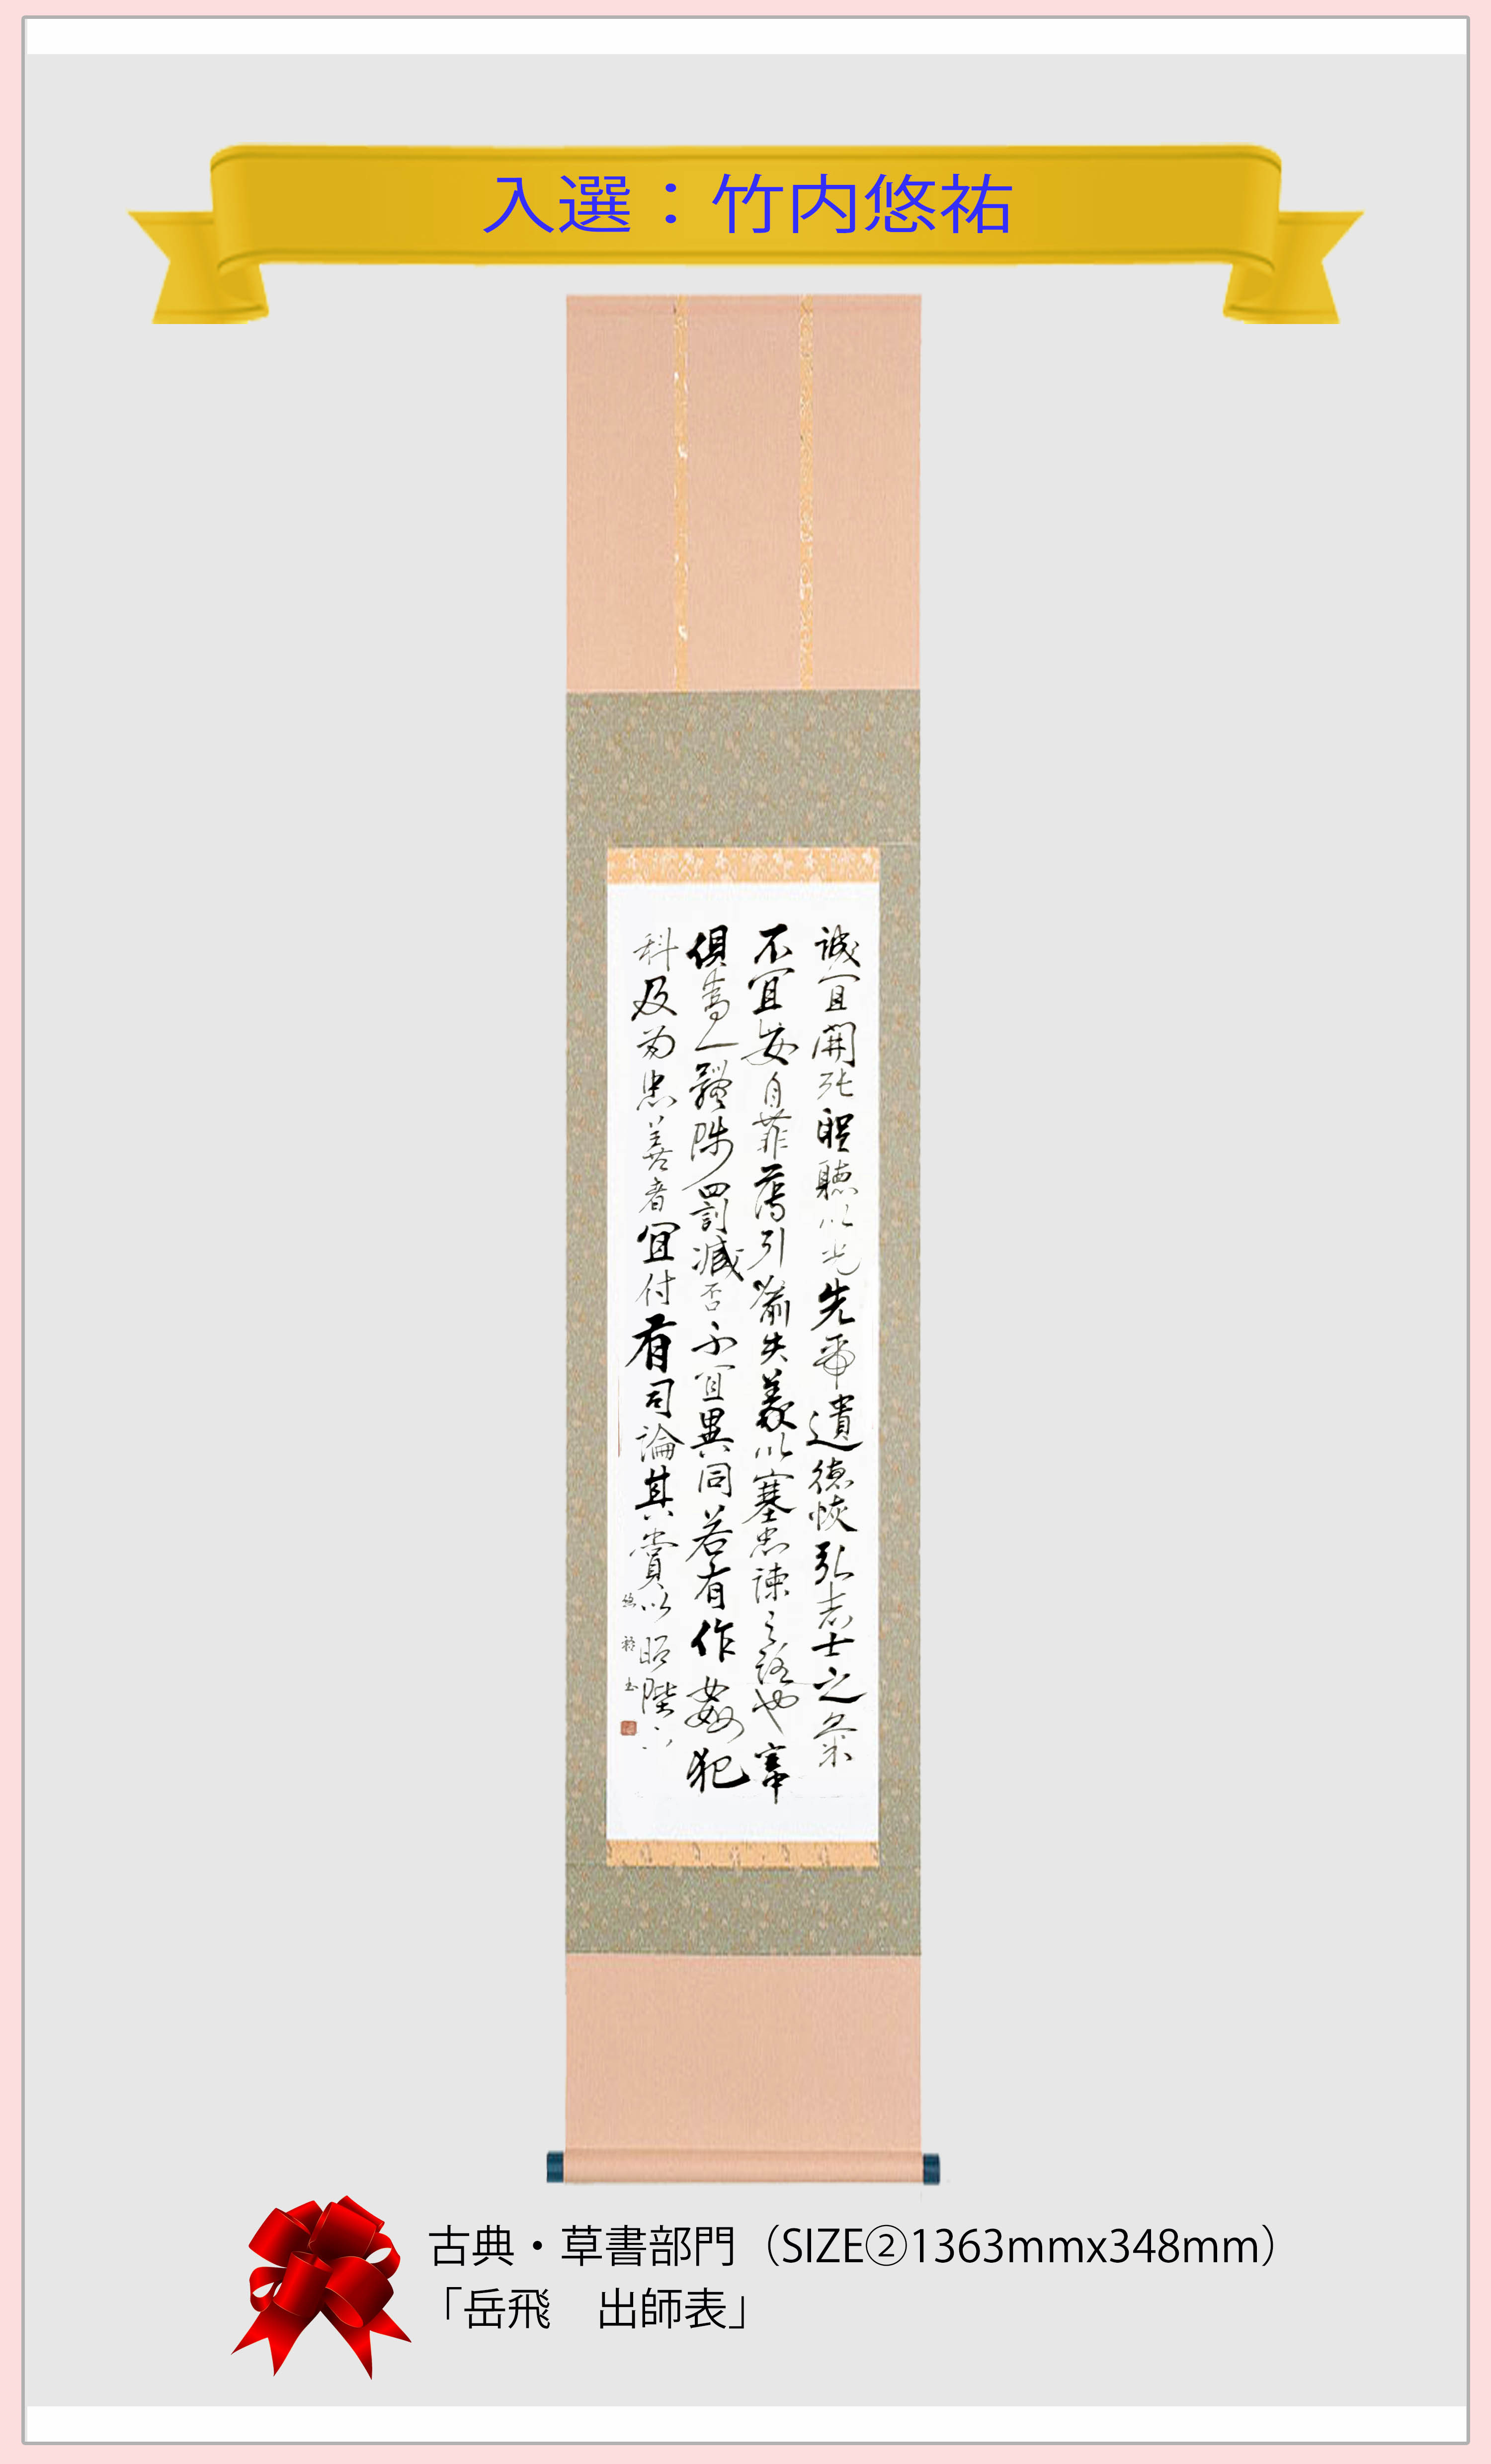 入選：竹内悠祐
誠宜開張聖聴以光先帝遺徳恢弘志士之氣
不宜妄自菲薄引喩失義以塞忠諫之路也宮中
俱為一體陟罰臧否不宜異同若有作姦犯
科及為忠善者宜付有司論其賞以昭陛下
悠祐書
古典・草書部門（SIZE②1363mmx348mm）
「岳飛　出師表」